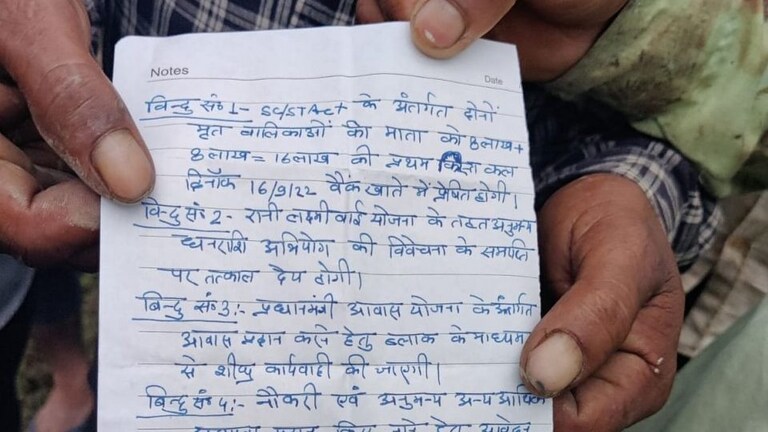 Notes
Date
बिन्दु सं० 1- SC/ST Act के अंतर्गत दोनों
मृत बालिकाओं की माता को 8 लाख +
8 लाख = 16 लाख की प्रथम कल
दिनाँक 16/9/22 बैंक खाते में प्रेषित होगी।
बिन्दु सं० 2- रानी लक्ष्मीबाई योजना के तहत अनुमन्य
धनराशि अभियोग की विवेचना के समाप्ति
पर तत्काल देय होगी।
बिन्दु सं० 3:- प्रधानमंत्री आवास योजना के अंतर्गत
आवास प्रदान करने हेतु ब्लाक के माध्यम
से शीघ्र कार्यवाही की जाएगी।
बिन्दु सं० 4:- नौकरी एवं अनुमन्य अन्य आर्थिक